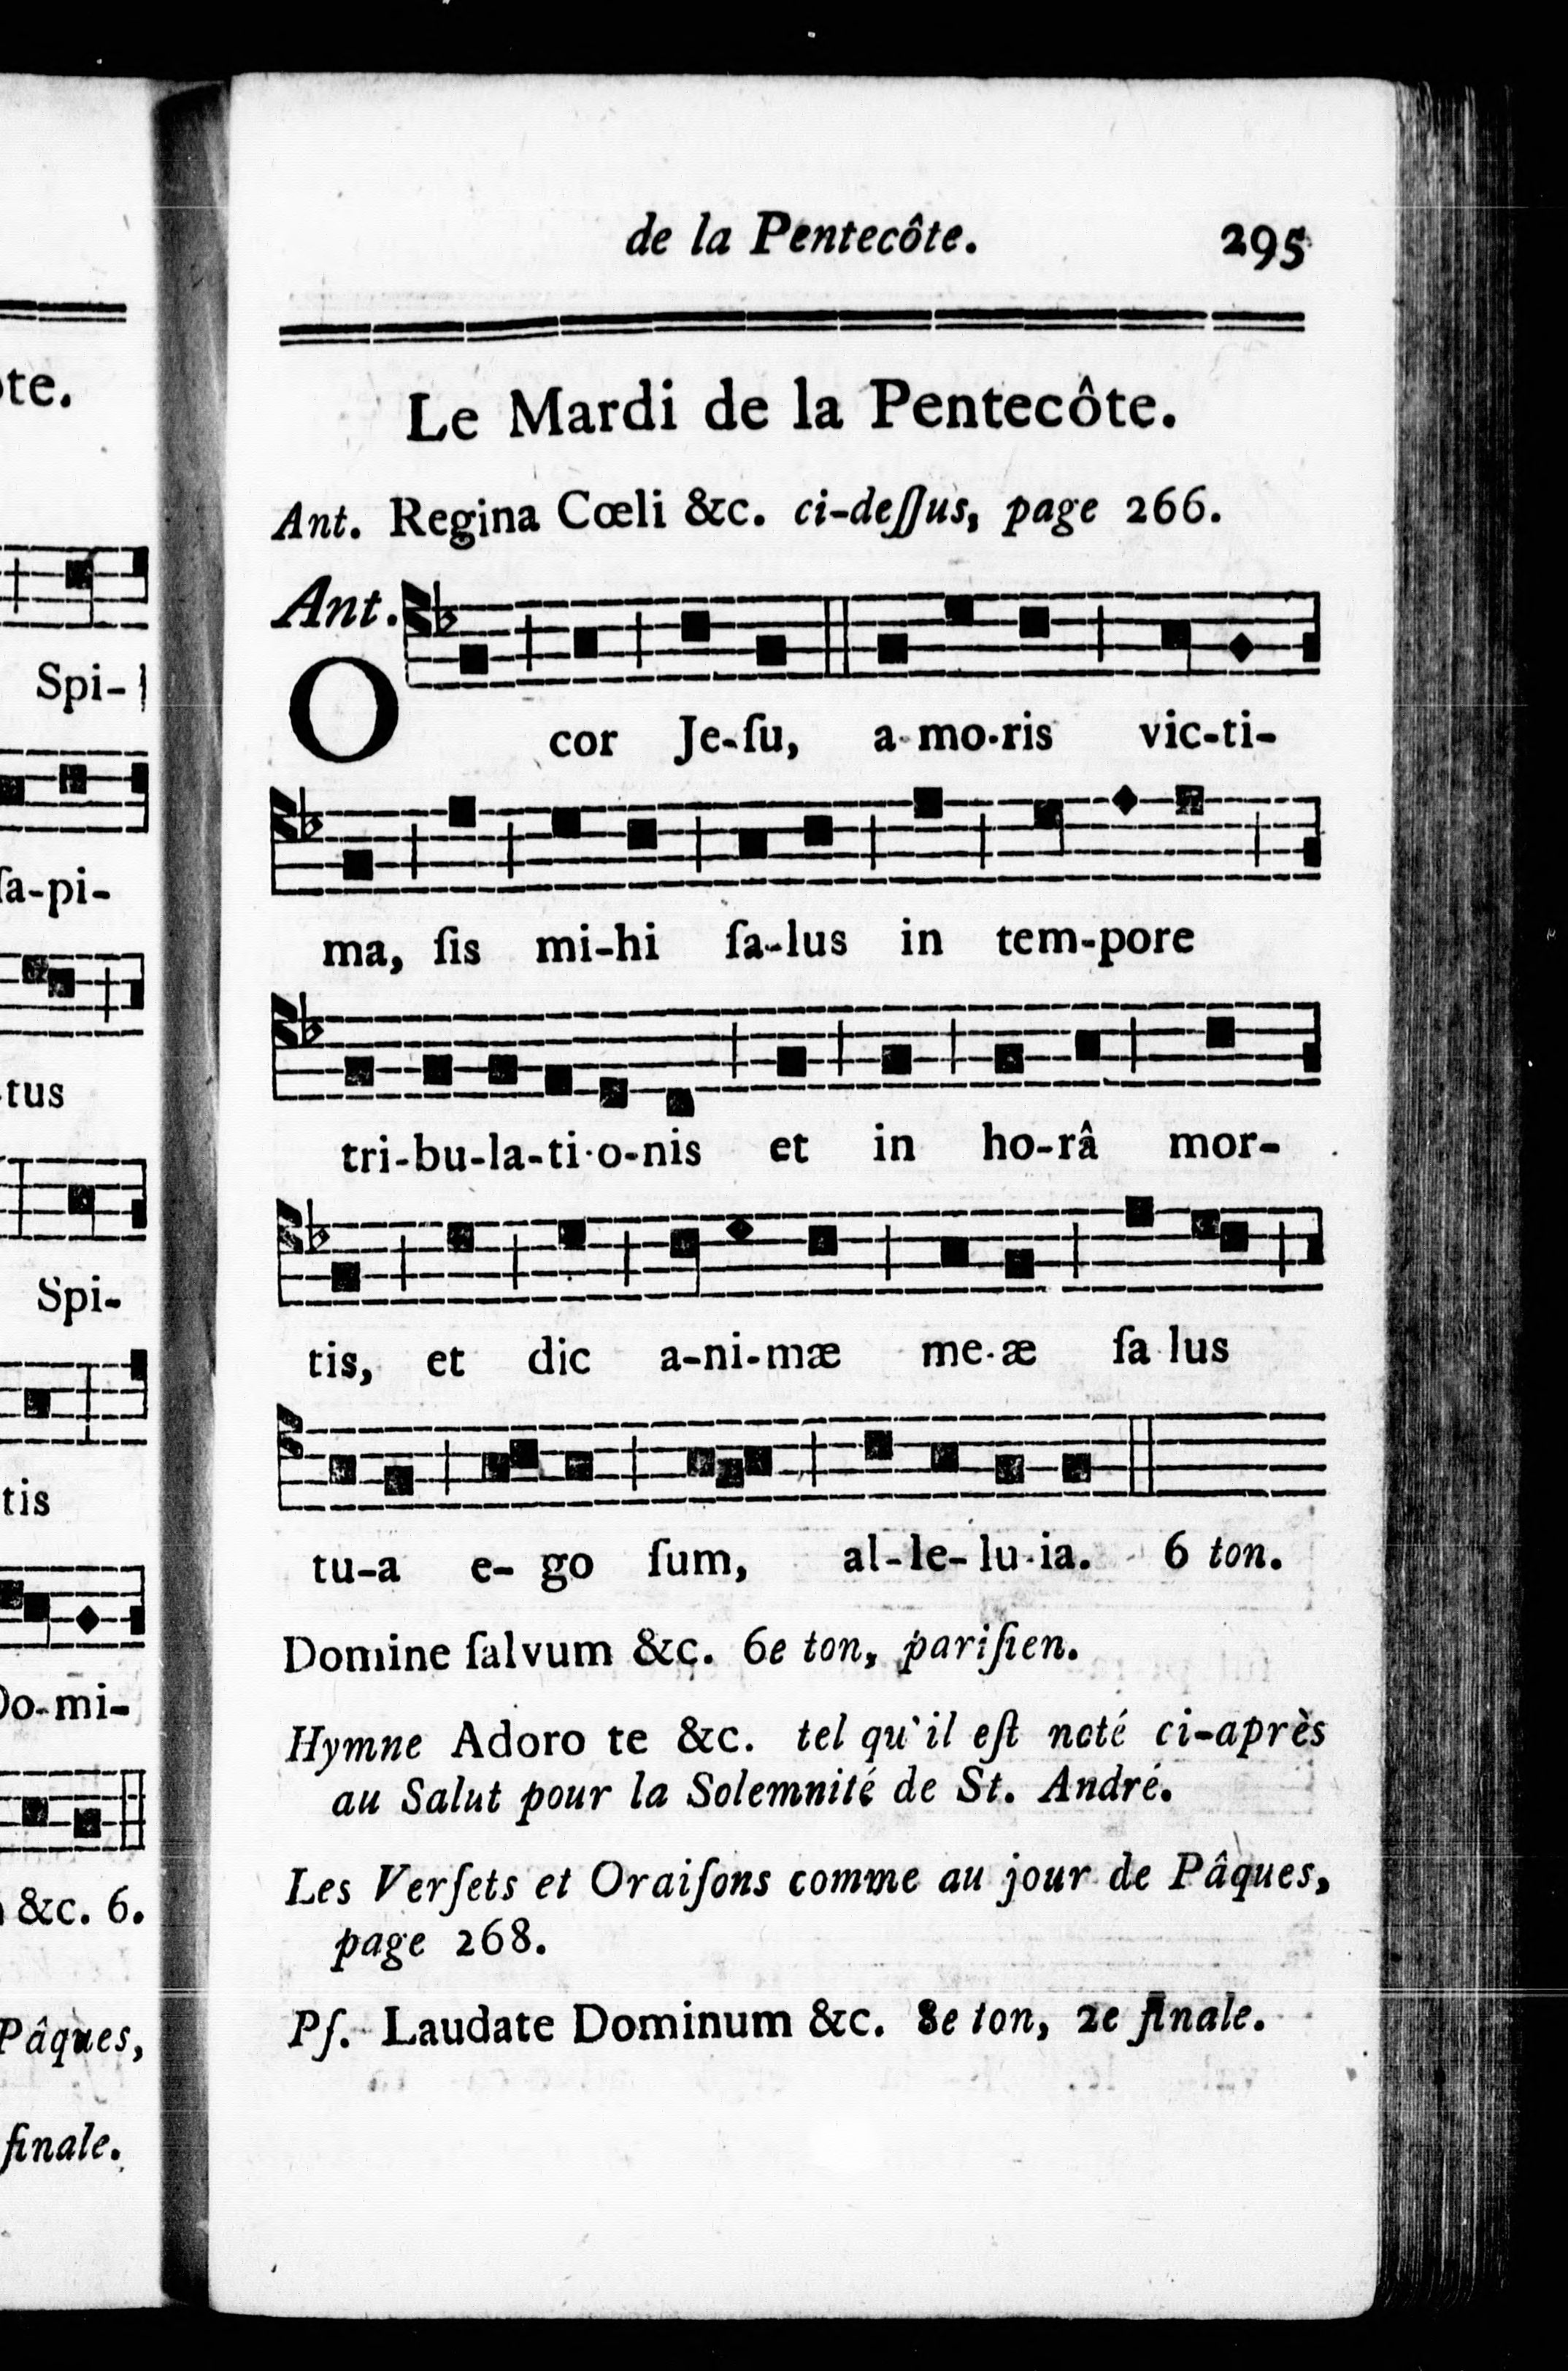 de la Pentecôte. 295
Le Mardi de la Pentecôte.
Ant. Regina Cœli &c. ci-deſſus, page 266.
Ant.
O cor Je-ſu, a-mo-ris vic-ti-
ma, ſis mi-hi ſa-lus in tem-pore
tri-bu-la-ti-o-nis et in ho-râ mor-
tis, et dic a-ni-mæ me-æ ſa lus
tu-a e- go ſum, al-le-lu-ia. 6 ton.
Domine ſalvum &c. 6e ton, pariſien.
Hymne Adoro te &c. tel qu'il eſt noté ci-après
au Salut pour la Solemnité de St. André.
Les Verſets et Oraiſons comme au jour de Pâques,
page 268.
Pſ. Laudate Dominum &c. 8e ton, 2e finale.
te.
Spi-
ſa-pi-
tus
Spi-
tis
Do-mi-
&c. 6.
Pâques,
finale.